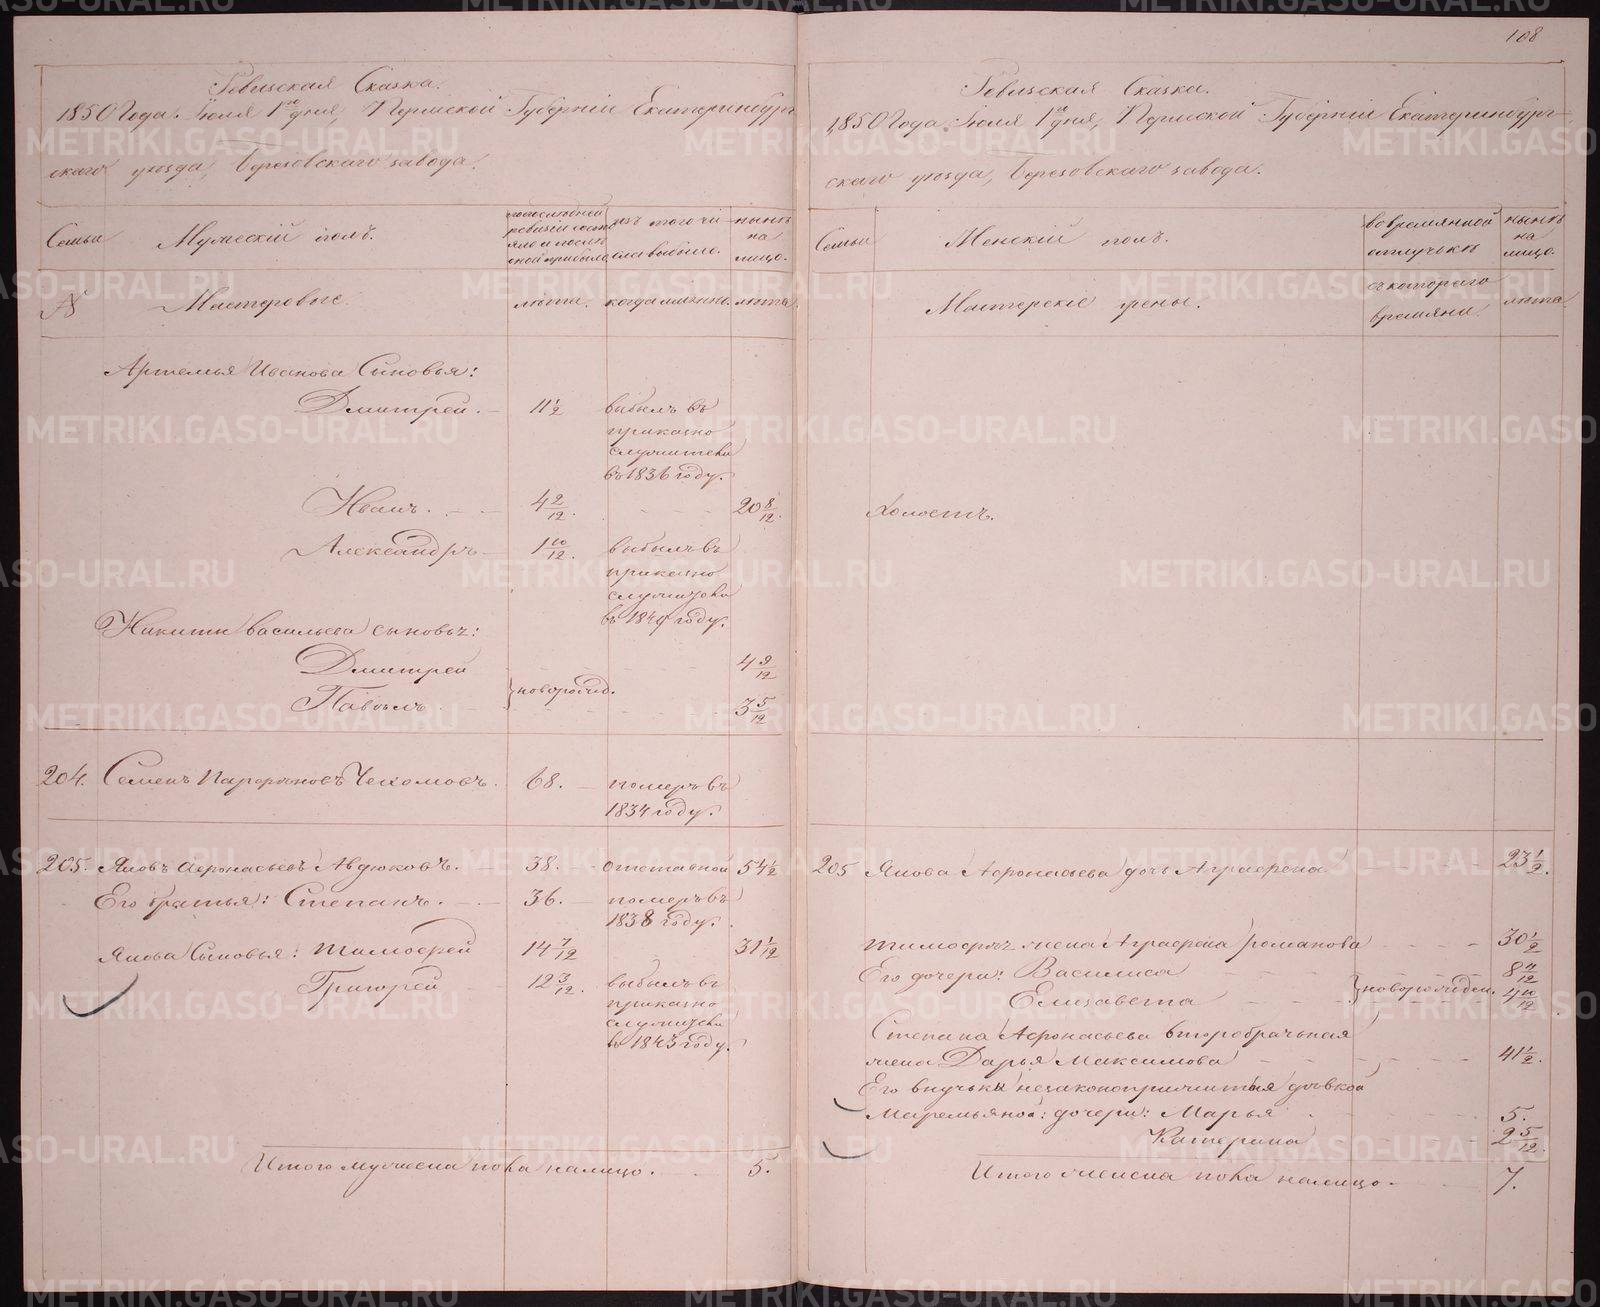 108
Ревизская Сказка.
1850 Года. Июля 1го дня, Пермской Губернiи Екатеринбург-
скаго уѣзда, Березовскаго завода.
Семьи
Мужескiй полъ.
по послѣдней ревизiи состояло и послѣ оной прибыло
изъ того числа выбыло.
нынѣ на лицо.
№
Мастеровые.
лѣта.
когда именно.
лѣта.
Артемья Иванова Сыновья:
Дмитрей. 11 1/2 выбылъ въ
приказно
служители
въ 1836 году.
Иванъ. 4 2/12. 20 8/12.
Александръ 1 10/12. выбылъ въ
приказно
служители
въ 1849 году.
Никиты Васильева сыновья:
Дмитрей 4 9/12
новорожд.
Павелъ. 3 5/12
204. Семенъ Парфеновъ Чехомовъ. 68. померъ въ
1834 году.
205. Яковъ Афонасьевъ Авдюковъ. 38. отставной 54 1/2
Его братья: Степанъ. 36. померъ въ
1838 году.
Якова Сыновья: Тимофей 14 7/12 31 1/12
Григорей 12 3/12. выбылъ въ
приказно
служители
въ 1843 году.
Итого мужеска пола налицо. 5.
Ревизская Сказка.
1850 Года Июля 1го дня, Пермской Губернiи Екатеринбург-
скаго уѣзда, Березовскаго завода.
Семьи
Женскiй полъ.
во временной отлучкѣ
нынѣ на лицо.
Мастерскiе жены.
съ котораго времяни.
лѣта
Холостъ.
205 Якова Афонасьева дочь Аграфена 23 1/2.
Тимофея жена Аграфена Романова 30 1/2
Его дочери: Василиса 8 11/12
новорожден.
Елизавета 4 10/12
Степана Афонасьева второбрачьная
жена Дарья Максимова 41 1/2.
Его внучьки незаконоприжитыя дѣвкой
Маремьяной: дочери: Марья 5.
Катерина 2 5/12.
Итого женска пола налицо. 7.
METRIKI.GASO-URAL.RU